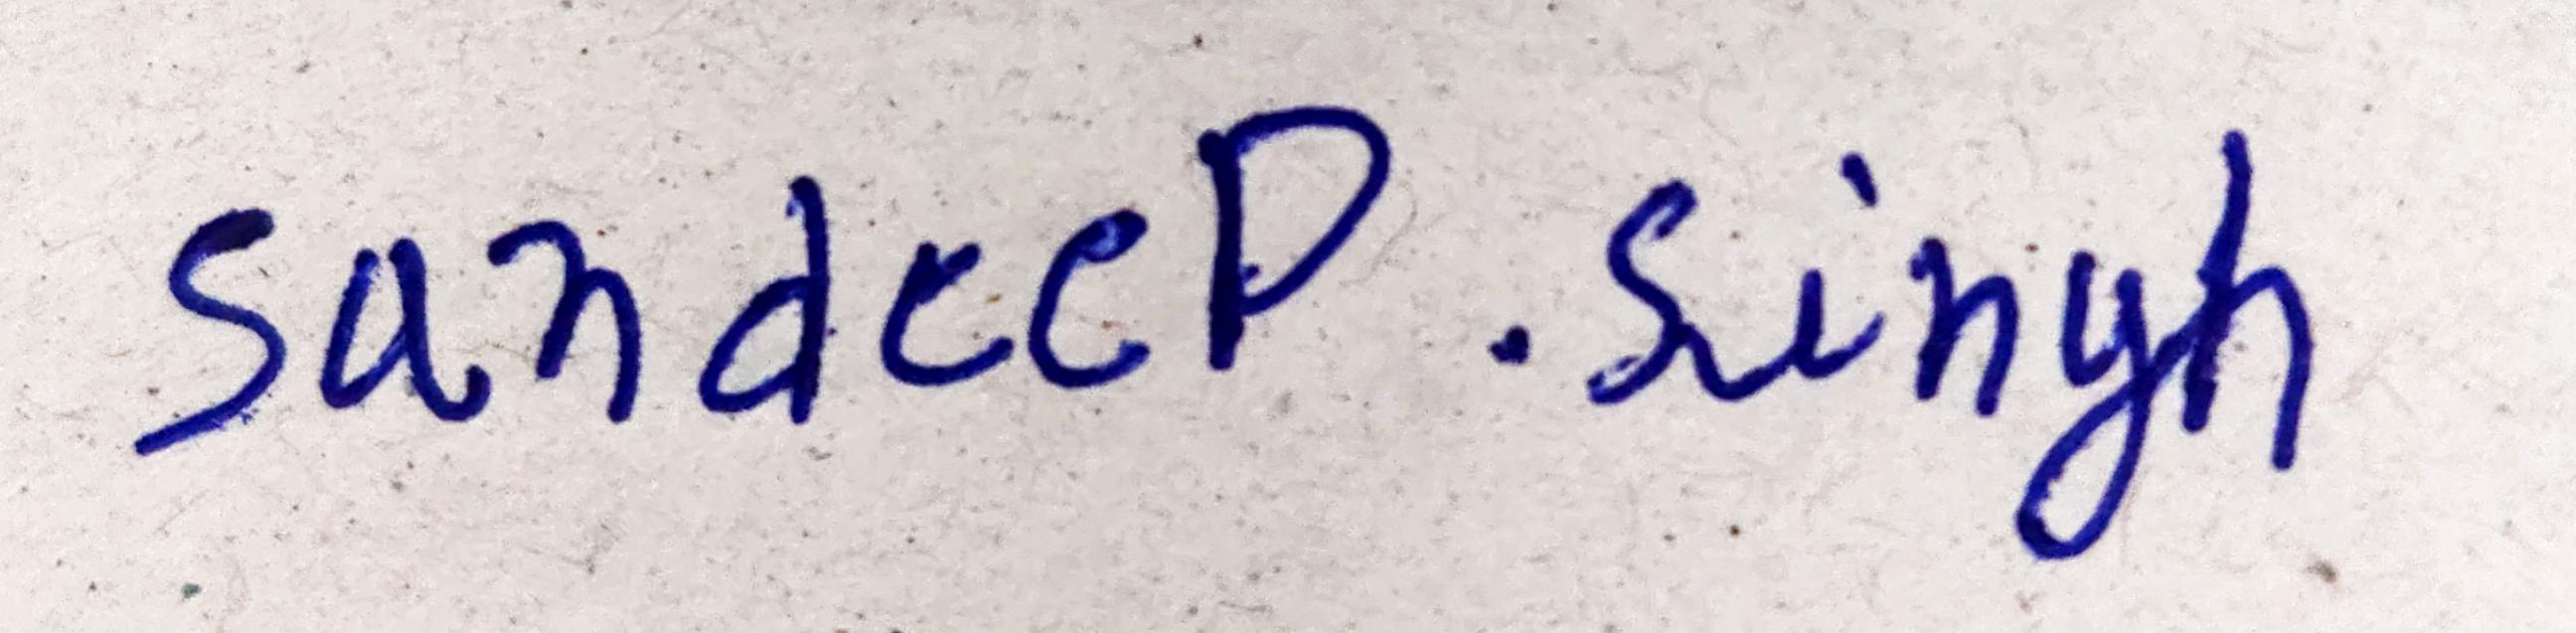 sandeeP .singh